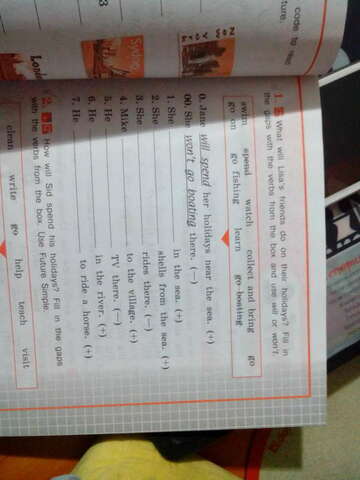 code to her
ture.
New York
Sydney
London
3
1. What will Lisa's friends do on their holidays? Fill in
the gaps with the verbs from the box and use will or won't.
swim spend watch collect and bring go
go on go fishing learn go boating
0. Jane will spend her holidays near the sea. (+)
00. She won't go boating there. (—)
1. She in the sea. (+)
2. She shells from the sea. (+)
3. She rides there. (—)
4. Mike to the village. (+)
5. He TV there. (—)
6. He in the river. (+)
7. He to ride a horse. (+)
2. How will Sid spend his holidays? Fill in the gaps
with the verbs from the box. Use Future Simple.
clean write go help teach visit